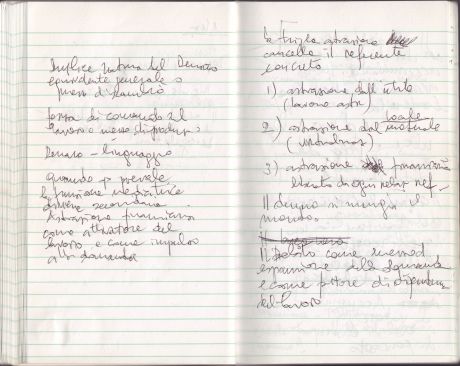 Duplice natura del Denaro
equivalente generale o
mezzo di scambio
forma di comando sul
lavoro e mezzo di produz.
Denaro - linguaggio
Quando prevale
la funzione
diviene secondaria
Astrazione finanziaria
come attivatore del
lavoro e come impulso
alla domanda
la triplice astrazione
cancella il referente
concreto
1) astrazione dall'utile
(lavoro astr)
2) astrazione dal locale materiale
3) astrazione finanziaria
da ogni ref
Il denaro si mangia il
mondo.
Il Debito come
espansione della domanda
e come fattore di dipendenza
del lavoro